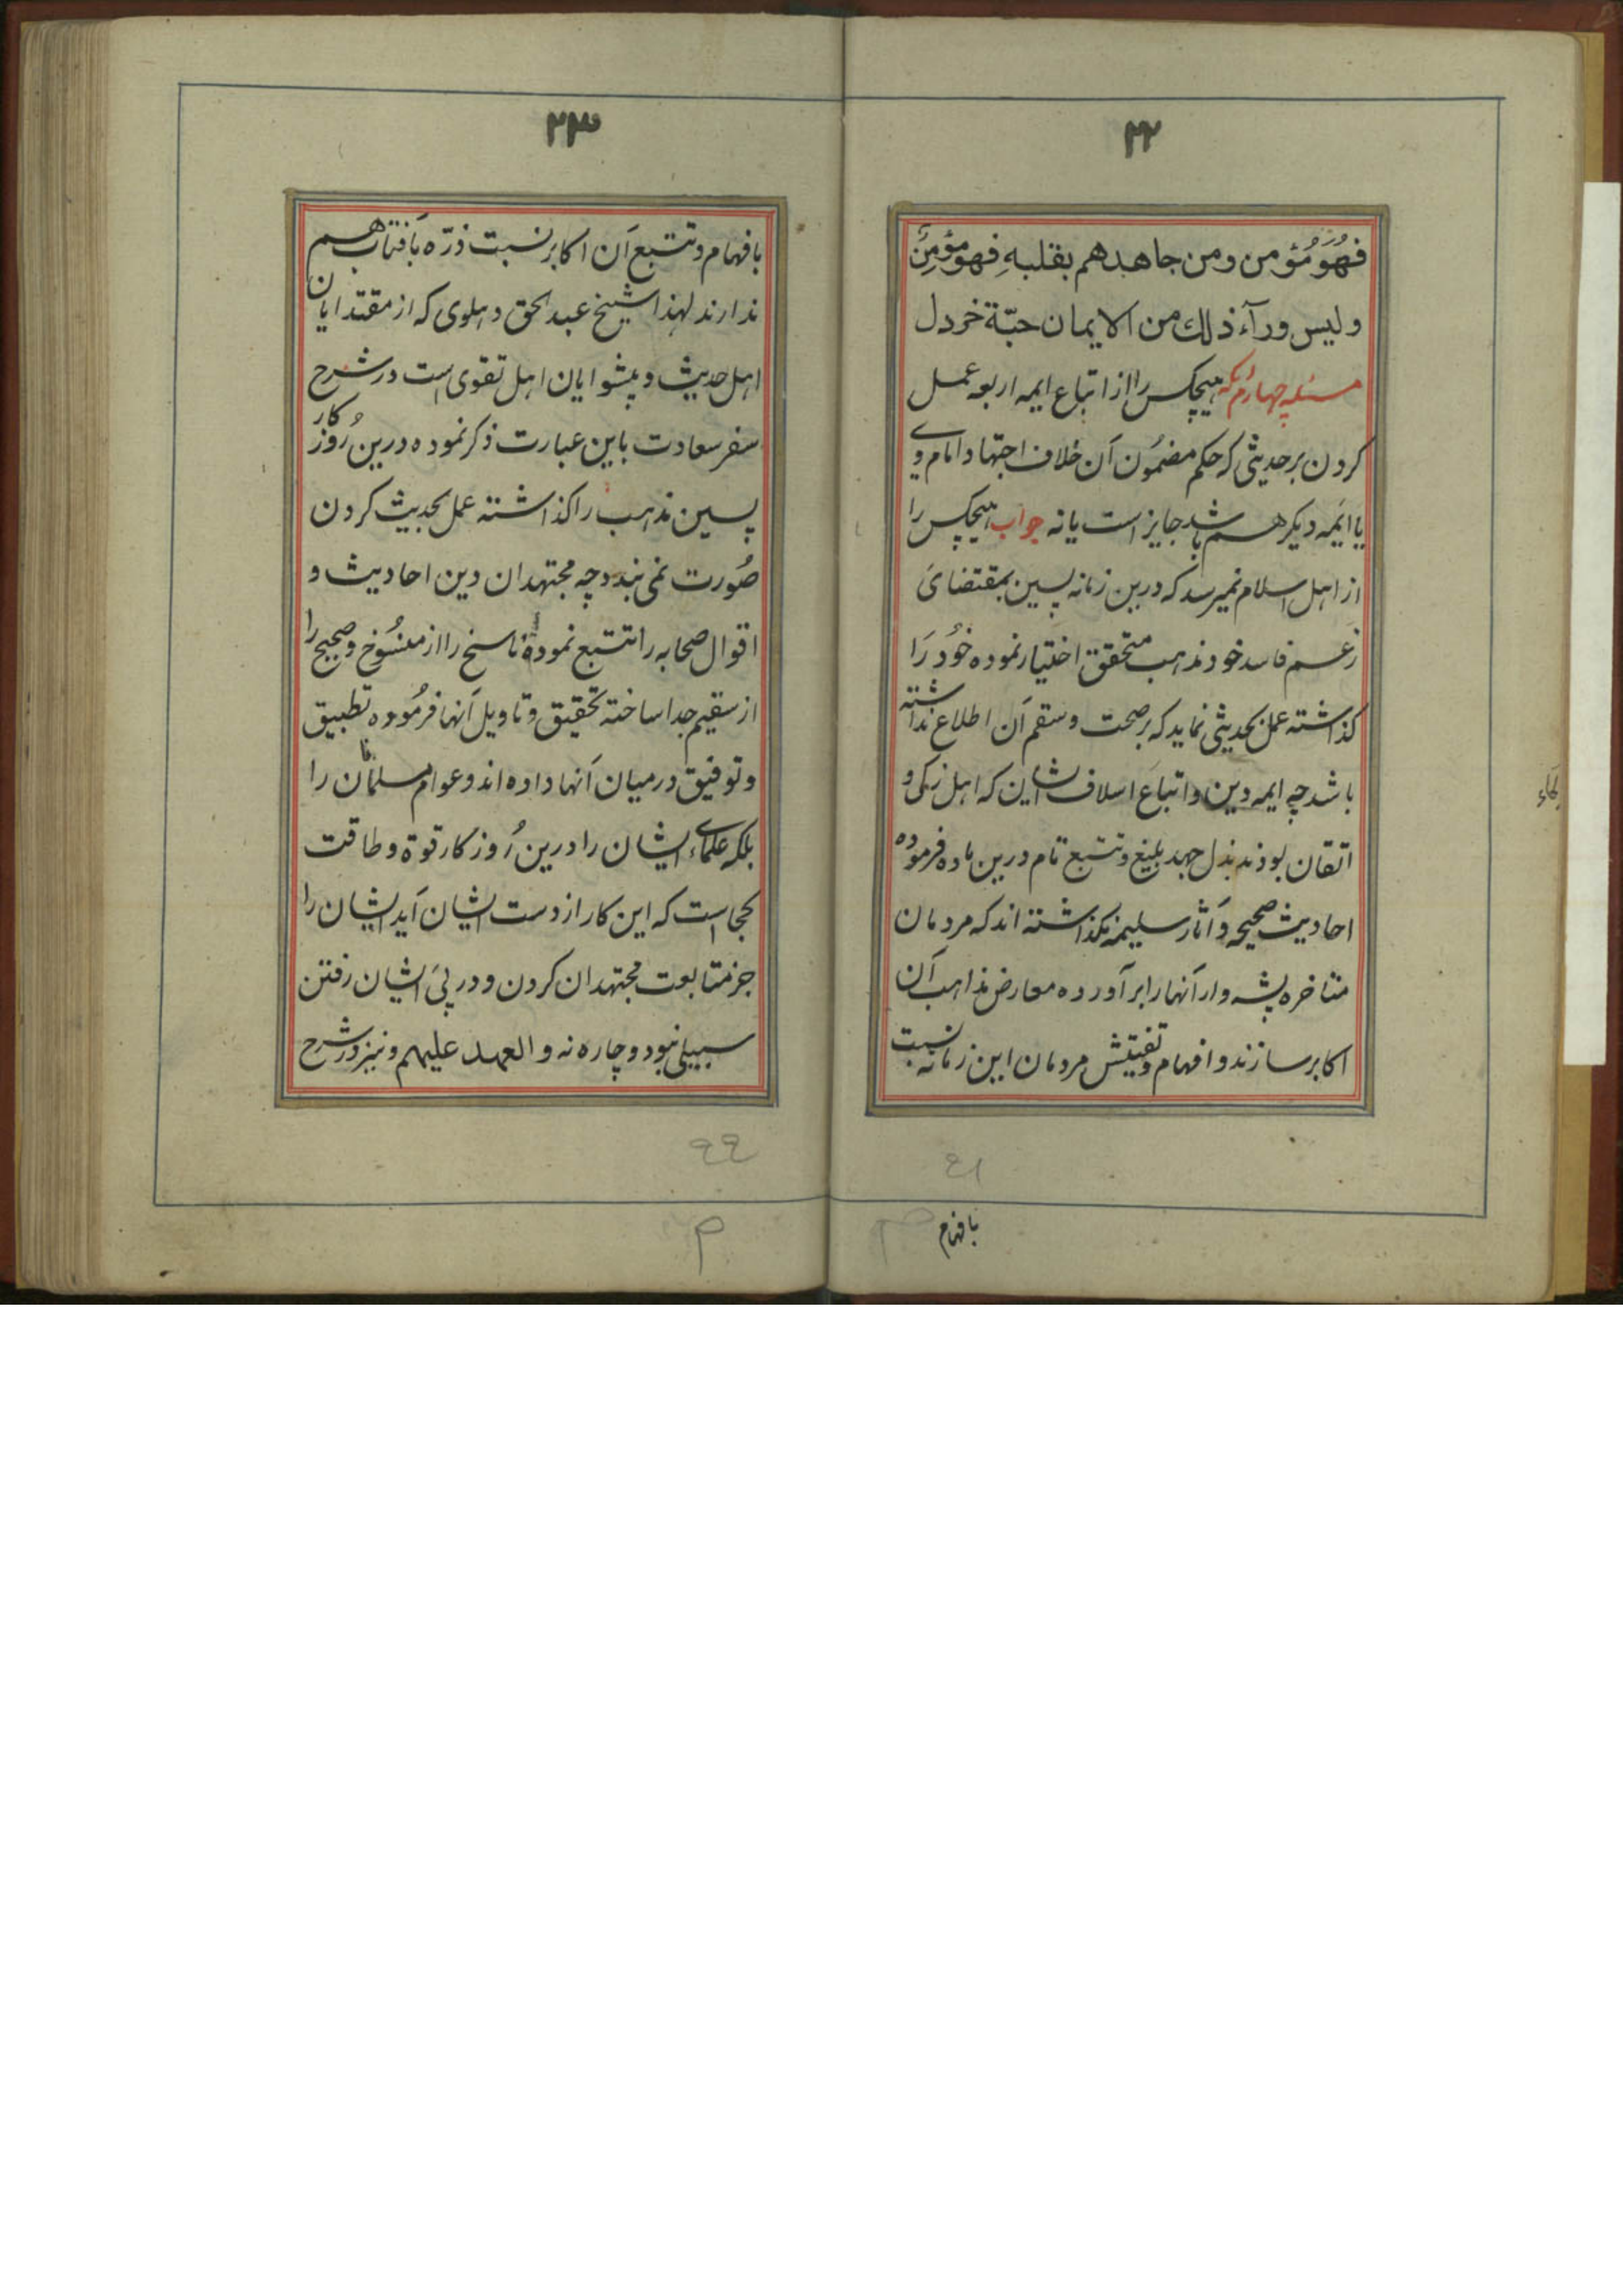 ۲۲
فهُوَ مُؤمن ومن جاهدهم بقلبهِ فهو مؤمِنٌ
وليس ورآء ذلك من الايمان حبّة خردل
مسئله چهارم آنکه هیچکس را از اتباع ایمه اربعه عمل
کردن بر حدیثی که حکم مضمُون آن خلاف اجتهاد امام وے
یا ایَمه دیکر هم باشد جایز است یا نه جواب هیچکس را
از اهل اسلام نمیرسد که درین زمانه پسین بمقتضایَ
زعم فاسد خود مذهب متحقق اختیار نموده خُود رَا
کذاشته عمل بحدیثی نماید که بر صحت و سقم آن اطلاع نداشته
باشد چه ایمه دین و اتباع اسلاف شان که اهل زکی و
اتقان بودند بذل جهد بلیغ و تتبع تام درین ماده فرموده
احادیث صحیحه و آثار سلیمه نکذاشته اند که مردمان
متاخره پشه وار آنها را بر آورده معارض مذاهب آن
اکابر سازند و افهام و تفتیش مردمان این زمانه نسبت
بافهام
۲۳
بافهام و تتبع آن اکابر نسبت ذرّه بآفتاب هم
ندارند لهذا شیخ عبد الحق دهلوی که از مقتدایان
اهل حدیث و پیشوایان اهل تقوی است در شرح
سفر سعادت باین عبارت ذکر نموده درین رُوزکار
پسین مذهب را کذاشته عمل بحدیث کردن
صُورت نمی بندد چه مجتهدان دین احادیث و
اقوال صحابه را تتبع نموده ناسخ را از منسُوخ و صحیح را
از سقیم جدا ساخته تحقیق و تاویل آنها فرمُوده تطبیق
و توفیق درمیان آنها داده اند و عوام مسلمانان را
بلکه علماے ایشان را درین رُوزکار قوة و طاقت
کجا است که این کار از دست ایشان آید ایشان را
جز متابعت مجتهدان کردن و در پی ایشان رفتن
سبیلی نبود و چاره نه و العهد علیهم و نیز در شرح